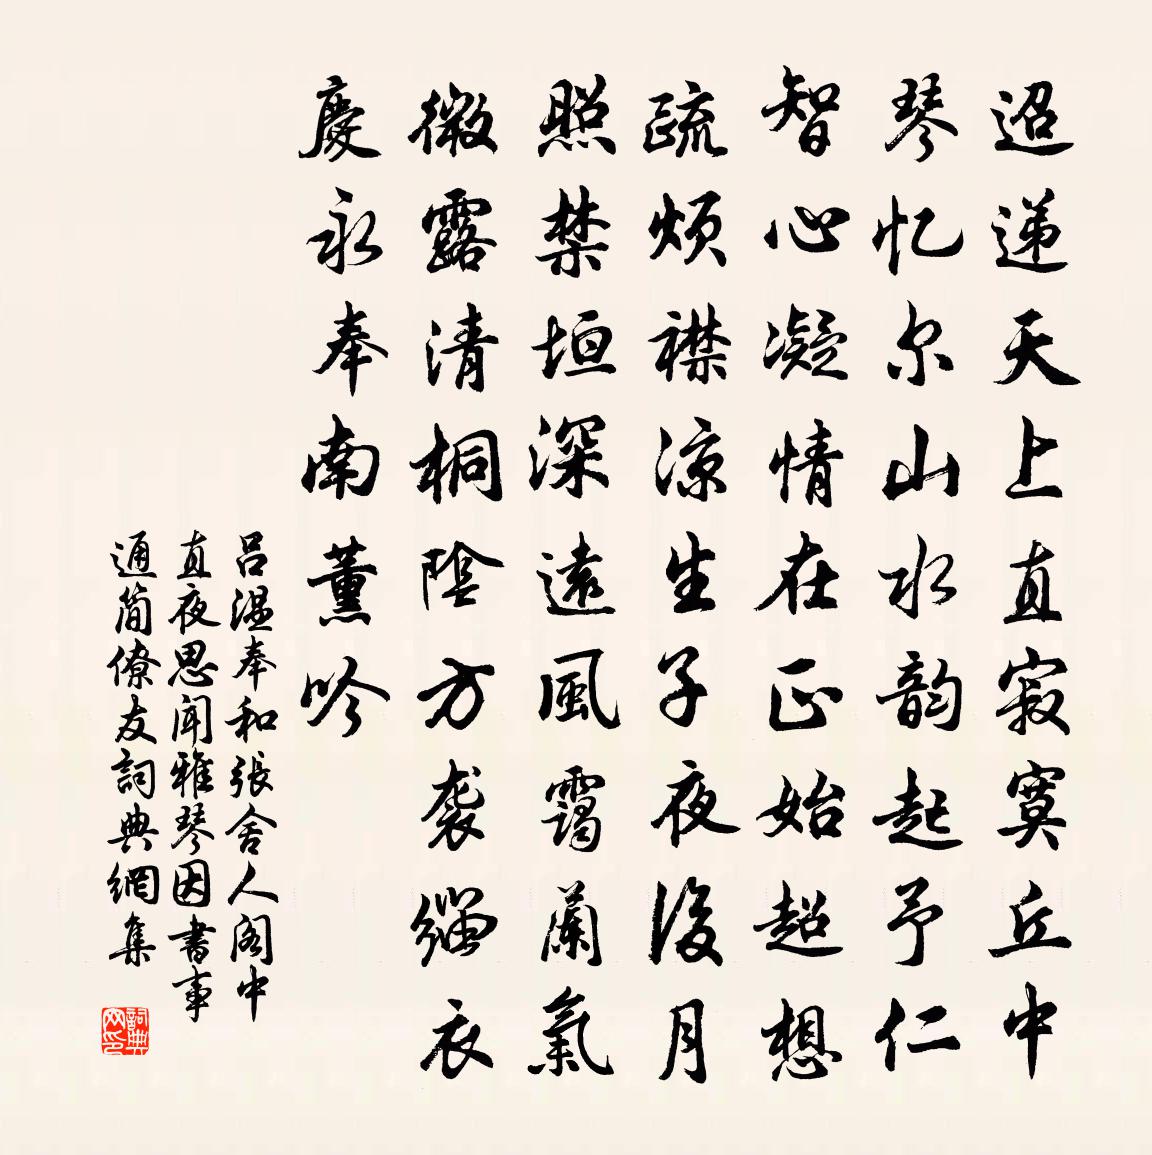 迢递天上直寂寞丘中
琴忆尔山水韵起予仁
智心凝情在正始超想
疏烦襟凉生子夜後月
照禁垣深遠風霭蘭氣
微露清桐陰方袭缁衣
慶永奉南薰吟
吕温奉和張舍人阁中
直夜思闻雅琴因書事
通简僚友詞典網集
詞典网印